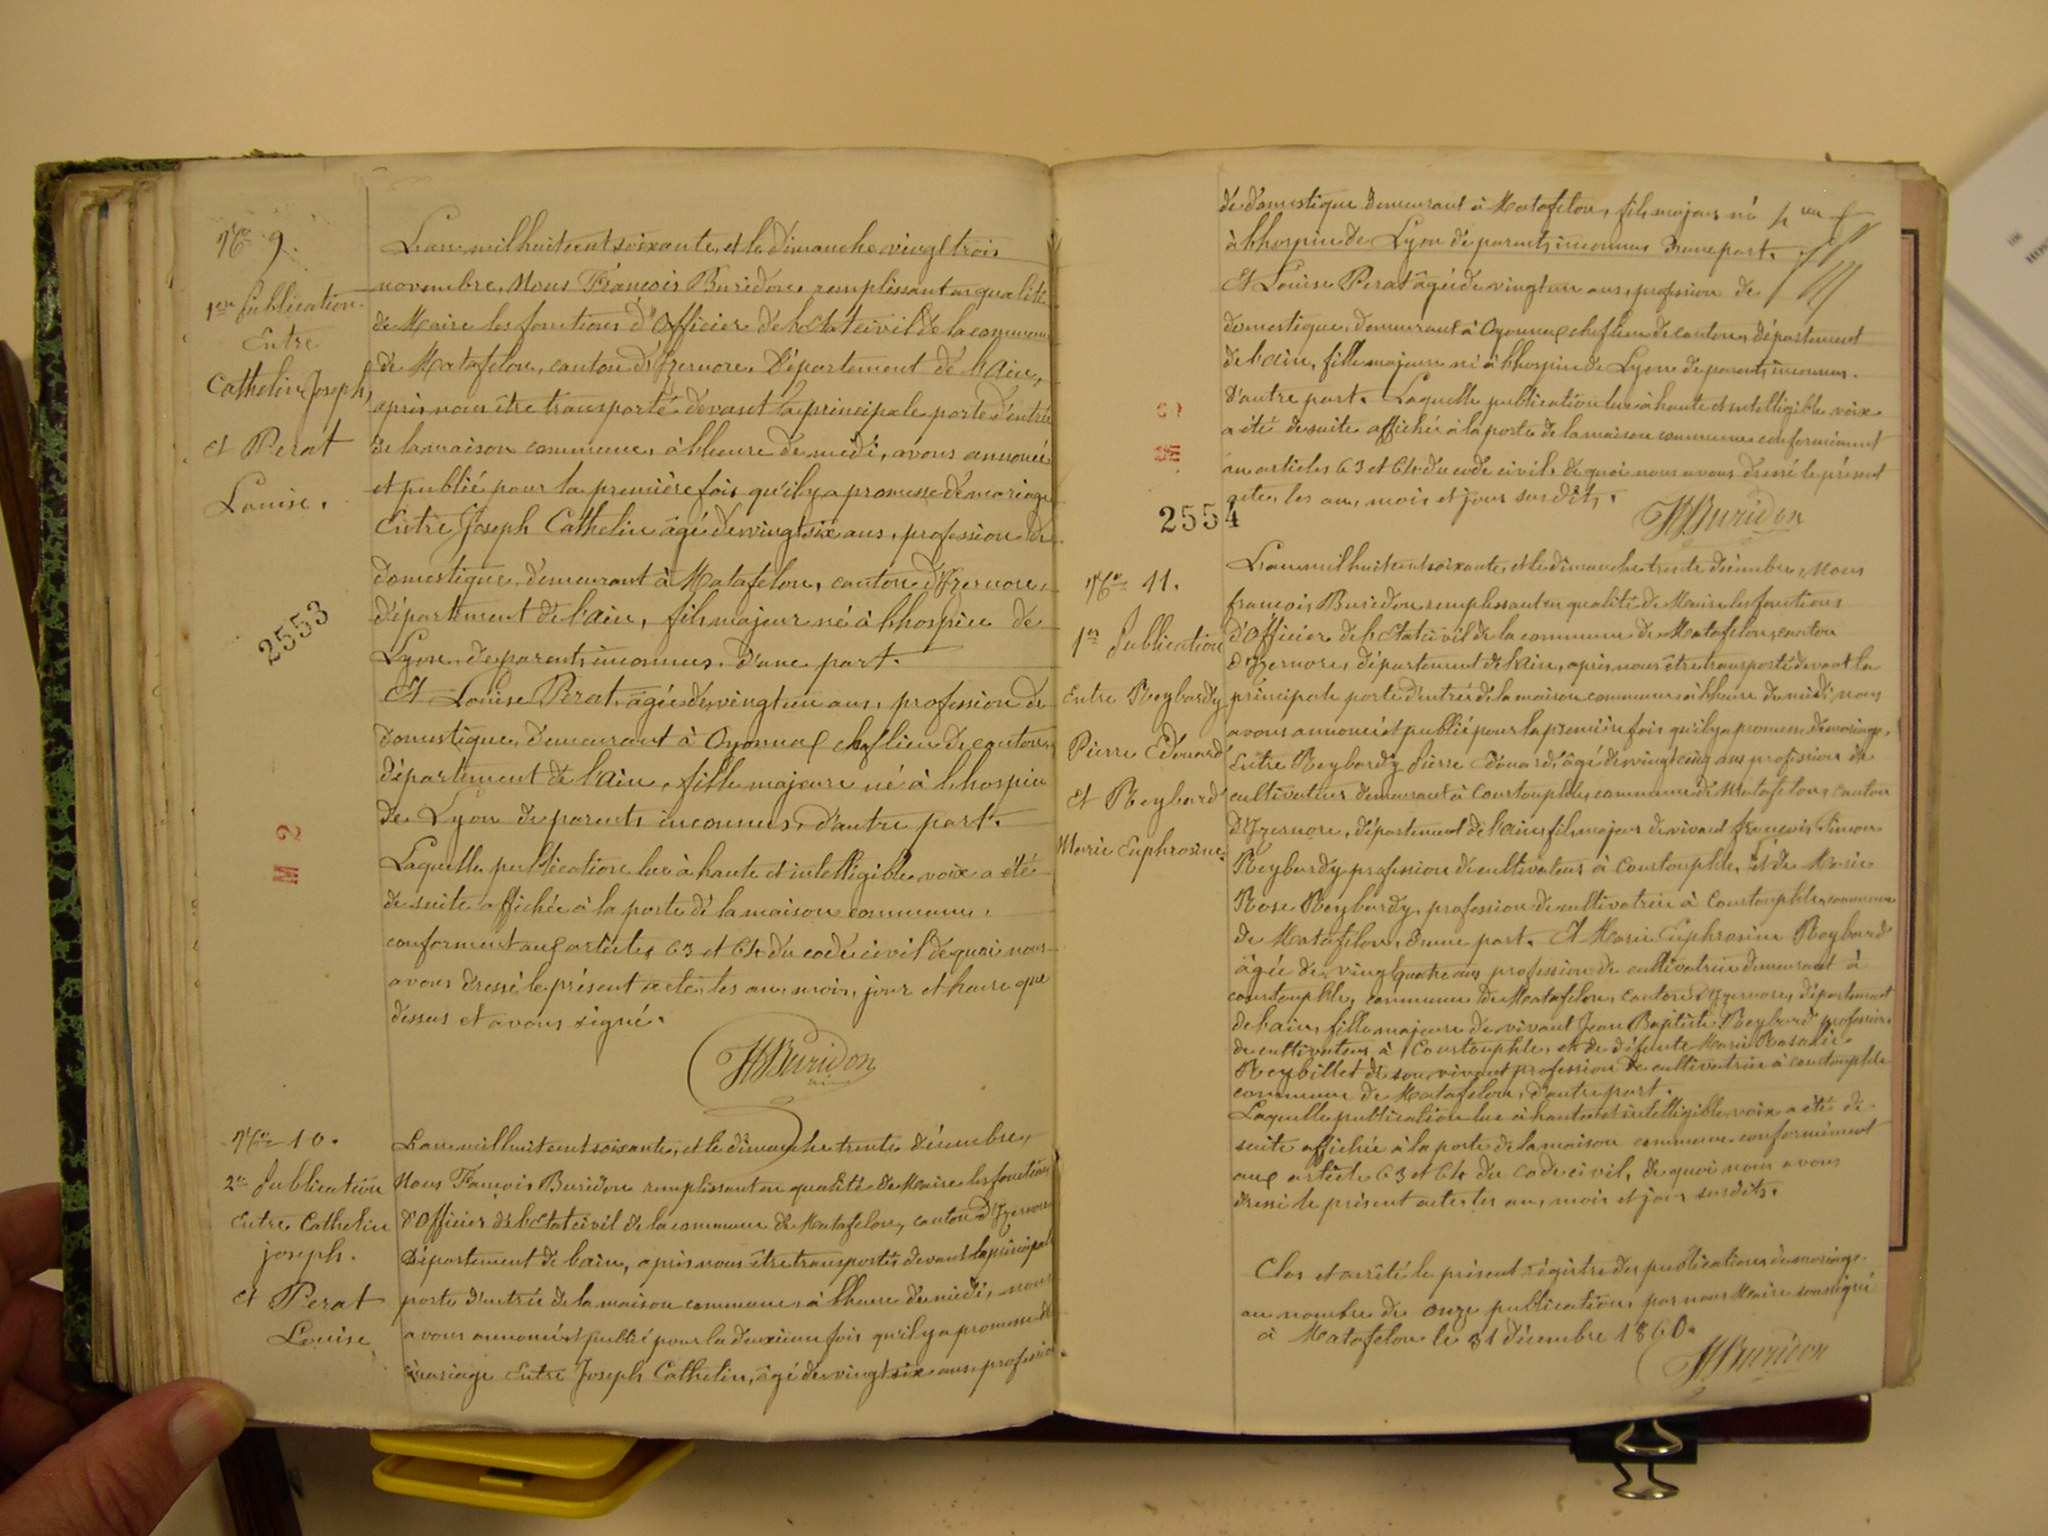 No 9.
1ere publication
Entre
Cathelin Joseph,
et Perat
Louise.
2553
M 2
L'an mil huit cent soixante, et le dimanche vingt trois
novembre, Nous François Buridon, remplissant en qualité
de Maire les fonctions d'Officier de l'Etat civil de la commune
de Matafelon, canton d'Izernore, Département de l'Ain,
après nous être transporté devant la principale porte d'entrée
de la maison commune, à l'heure de midi, avons annoncé
et publié pour la première fois qu'il y a promesse de mariage
Entre Joseph Cathelin âgé de vingt six ans, profession de
domestique demeurant à Matafelon, canton d'Izernore,
département de l'ain, fils majeur né à l'hospice de
Lyon, de parents inconnus. d'une part.
Et Louise Perat, âgée de vingt un ans, profession de
domestique, demeurant à Oyonnax chef lieu de canton,
département de l'ain, fille majeure né à l'hospice
de Lyon de parents inconnus, d'autre part.
Laquelle publication lue à haute et intelligible voix a été
de suite affichée à la porte de la maison commune,
conforment aux articles 63 et 64 du code civil de quoi nous
avons dressé le présent acte, les an, mois, jour et heure que
dessus et avons signé.
Buridon
No 10.
2e publication
Entre Cathelin
joseph.
et Perat
Louise
L'an mil huit cent soixante, et le dimanche trente décembre,
Nous François Buridon remplissant en qualité de Maire les fonctions
d'Officier de l'Etat civil de la commune de Matafelon, canton d'Izernore
Département de l'ain, après nous être transporté devant la principale
porte d'entrée de la maison commune à l'heure de midi, nous
avons annoncé et publié pour la deuxième fois qu'il y a promesse de
mariage Entre Joseph Cathelin, âgé de vingt six ans, profession
de domestique demeurant à Matafelon, fils majeur né
à l'hospice de Lyon de parents inconnus d'une part.
Et Louise Perat âgée de vingt un ans, profession de
domestique, demeurant à Oyonnax chef lieu de canton, département
de l'ain, fille majeure né à l'hospice de Lyon de parents inconnus.
d'autre part. Laquelle publication lue à haute et intelligible voix
a été de suite affichée à la porte de la maison commune conformément
au articles 63 et 64 du code civil, de quoi nous avons dressé le présent
acte, les an, mois et jour susdits.
Buridon
2554
No 11.
1re publication
Entre Reybardy
Pierre Edouard
et Reybard
Marie Euphrosine.
L'an mil huit cent soixante, et le dimanche trente décembre, Nous
françois Buridon remplissant en qualité de Maire les fonctions
d'Officier de l'Etat civil de la commune de Matafelon, canton
d'Izernore, département de l'ain, après nous être transporté devant la
principale porte d'entrée de la maison commune à l'heure de midi, nous
avons annoncé et publié pour la première fois qu'il y a promesse de mariage,
Entre Reybardy pierre Edouard, âgé de vingt cinq ans profession de
cultivateur demeurant à Courtouphle, commune de Matafelon, canton
d'Izernore, département de l'ain, fils majeur de vivant françois Simon
Reybardy profession de cultivateur à Courtouphle, et de Marie
Rose Reybardy, profession de cultivatrice à Courtouphle, commune
de Matafelon, d'une part. Et Marie Euphrosine Reybard
âgée de vingt quatre ans profession de cultivatrice demeurant à
courtouphle, commune de Matafelon, canton d'Izernore, département
de l'ain, fille majeure de vivant Jean Baptiste Reybard profession
de cultivateur à Courtouphle, et de défunte Marie Rosalie
Reybillet de son vivant profession de cultivatrice à courtouphle
commune de Matafelon, d'autre part.
Laquelle publication lue à haute et intelligible voix a été de
suite affichée à la porte de la maison commune conformément
aux article 63 et 64 du code civil, de quoi nous avons
dressé le présent acte, les an, mois et jour susdits.
Clos et arrêté le présent régistre des publications de mariage
au nombre de onze publications par nous Maire soussigné
à Matafelon le 31 décembre 1860.
Buridon